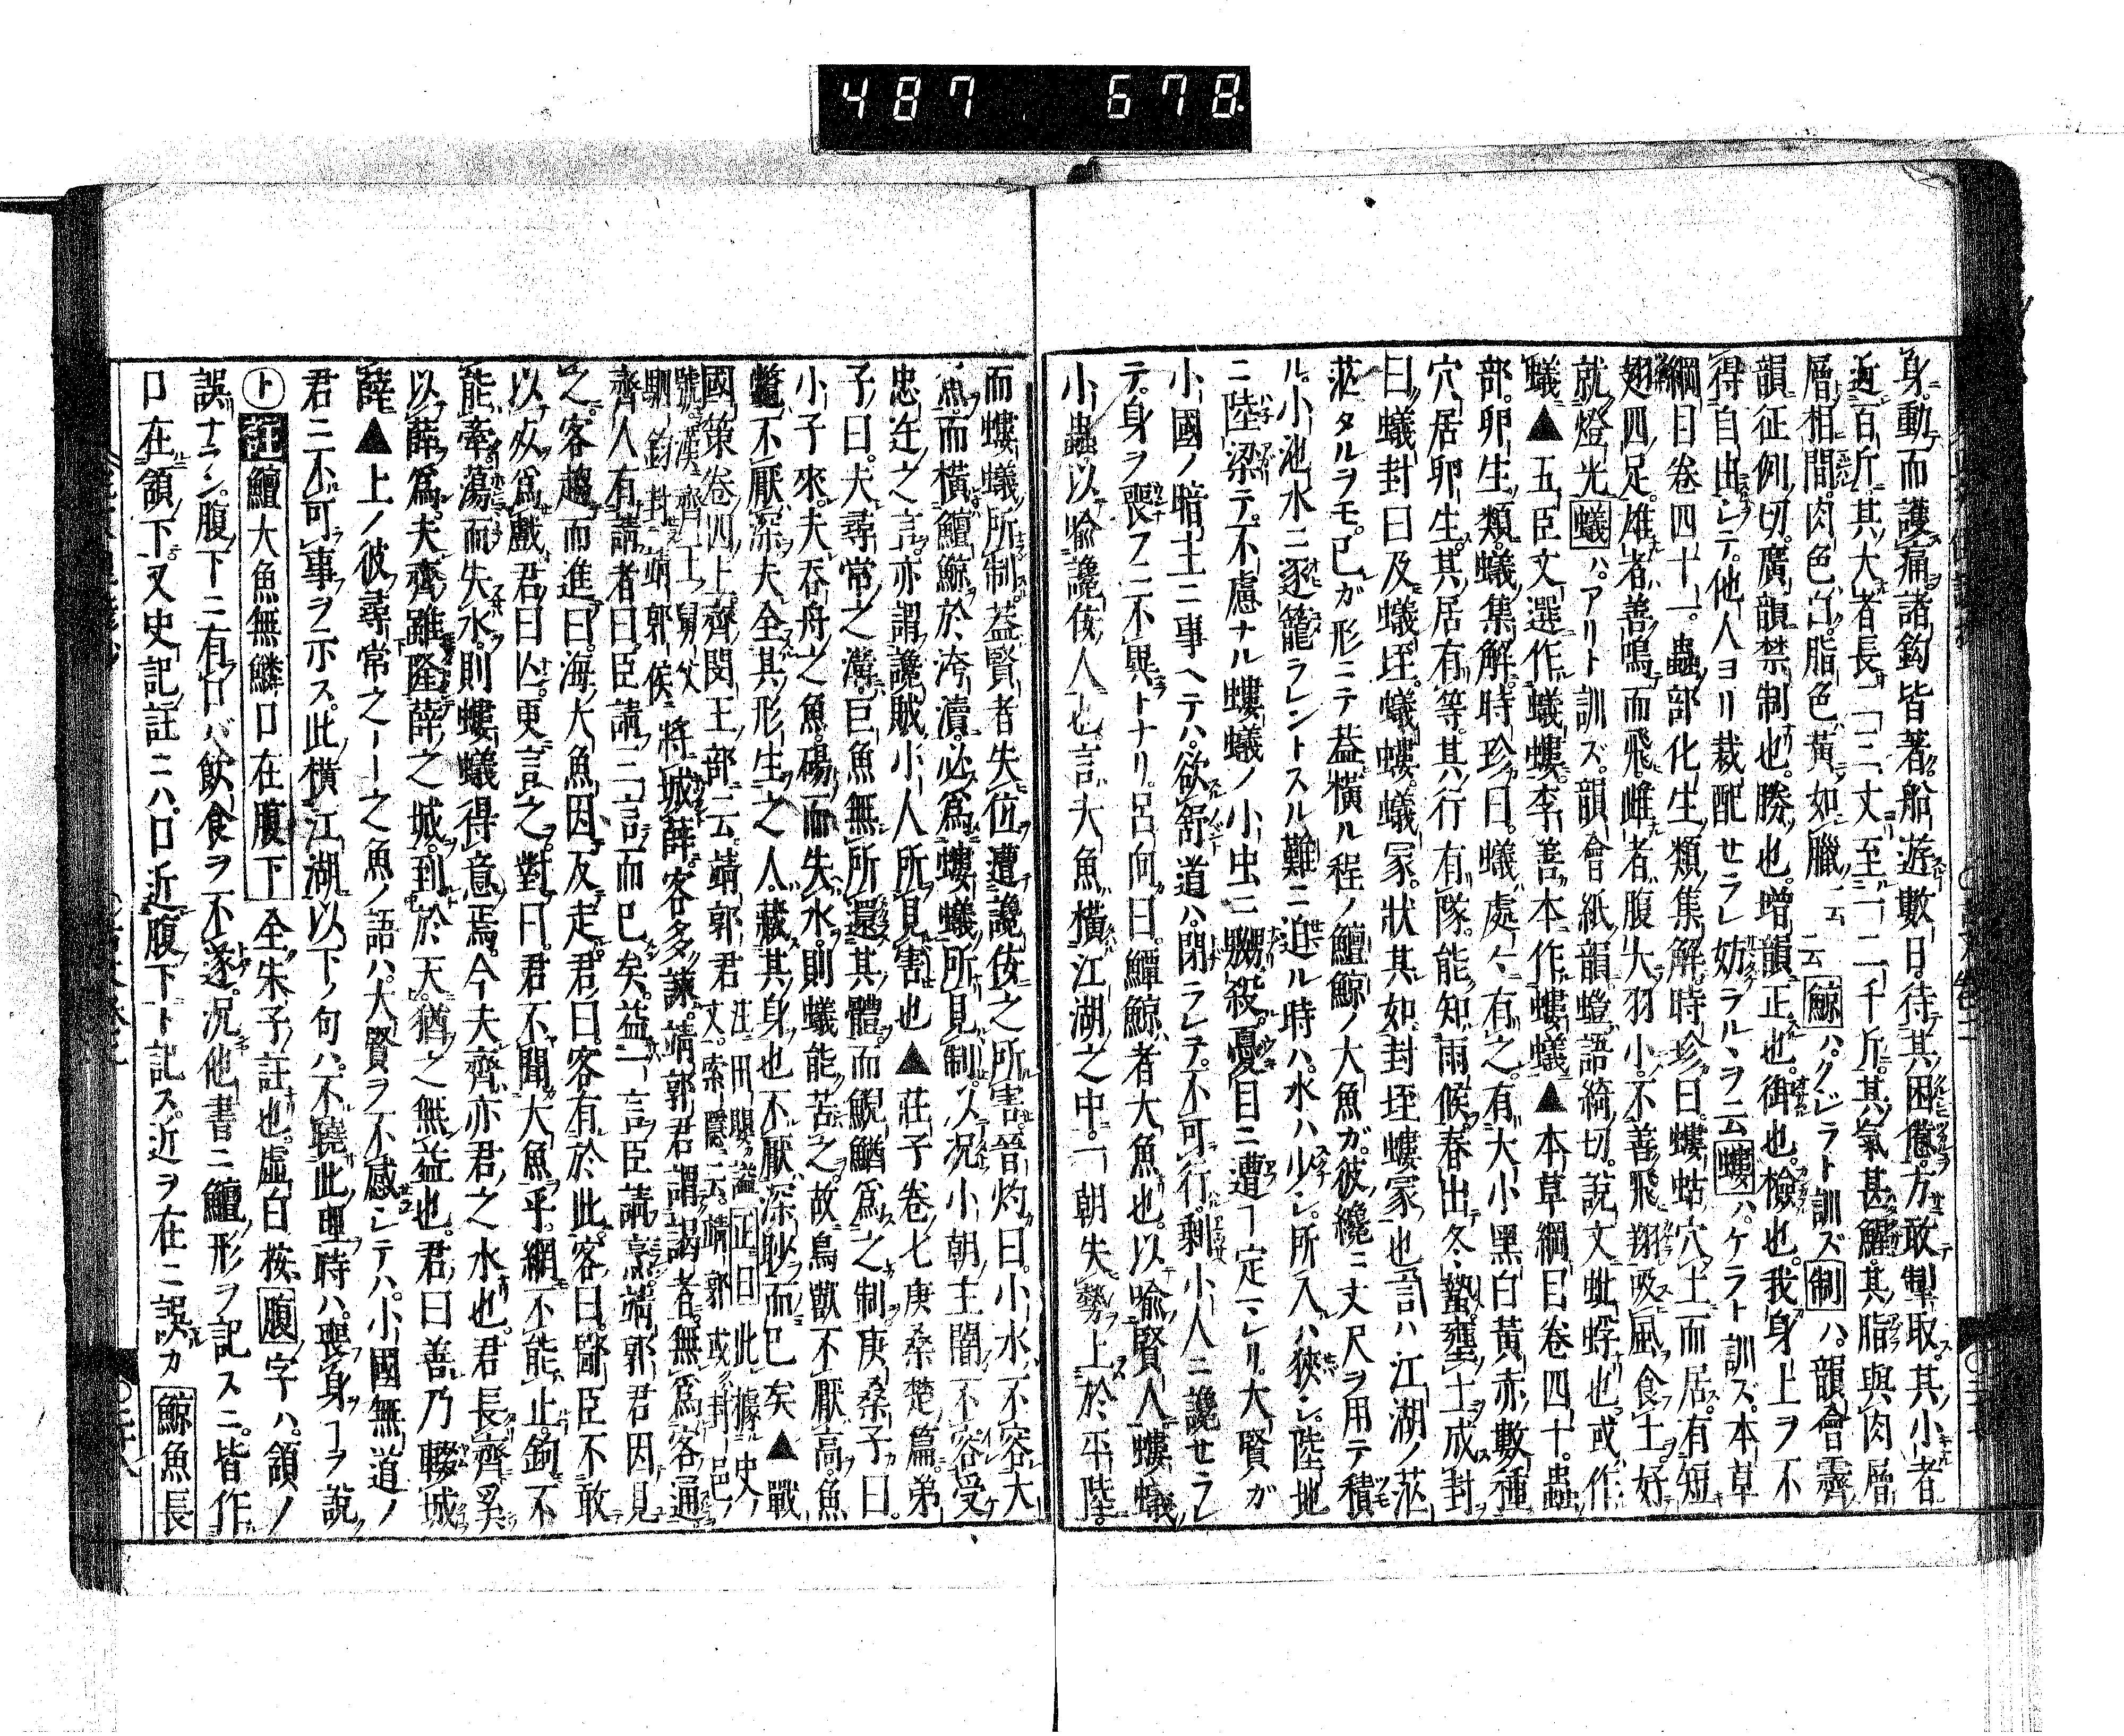 487 678.
身動而護痛諸鈎皆著船遊數日待其困憊方敢掣取其小者
近百斤其大者長二三丈至一二千斤其氣甚鯹其脂與肉層
層相間肉色白脂色黃如臘云云鯨ハクジラト訓ズ制ハ韻會霽
韻征例切廣韻禁制也勝也增韻正也御也檢也我身上ヲ不
得自由シテ他人ヨリ裁配セラレ妨ラルヽヲ云螻ハケラト訓ズ本草
綱目卷四十一蟲部化生類集解時珍曰螻蛄穴土而居有短
翅四足雄者善鳴而飛雌者腹大羽小不善飛翔吸風食土好
就燈光蟻ハアリト訓ズ韻會紙韻螘語綺切說文蚍蜉也或作
蟻▲五臣文選作蟻螻李善本作螻蟻▲本草綱目卷四十蟲
部卵生類蟻集解時珍曰蟻處々有之有大小黑白黃赤數種
穴居卵生其居有等其行有隊能知雨候春出冬蟄壅土成封
曰蟻封曰及蟻垤蟻螻蟻冢狀其如封垤螻冢也言ハ江湖ノ茫
茫タルヲモ已ガ形ニテ益橫ル程ノ鱣鯨ノ大魚ガ彼纔ニ丈尺ヲ用テ積
ル小池水ニ逐籠ラレントスル難ニ迫ル時ハ水ハ少シ所入ハ狹シ陸地
ニ陸梁テ不慮ナル螻蟻ノ小虫ニ嬲殺憂目ニ遭ヿ定マレリ大賢ガ
小國ノ暗主ニ事ヘテハ欲舒道ハ閉ラレテ不可行剩小人ニ讒セラレ
テ身ヲ喪フニ不異トナリ呂向曰鱏鯨者大魚也以喩賢人螻蟻
小蟲以喩讒佞人也言大魚橫江湖之中一朝失勢上於平陸
而螻蟻所制益賢者失位遭讒佞之所害晉灼曰小水不容大
魚而橫鱣鯨於洿瀆必爲螻蟻所見制又況小朝主闇不容受
忠迕之言亦謂讒賊小人所見害也▲莊子卷七庚桑楚篇弟
子曰夫尋常之溝巨魚無所還其體而鯢鰌爲之制庚桑子曰
小子來夫吞舟之魚碭而失水則蟻能苦之故鳥獸不厭高魚
鼈不厭深夫全其形生之人藏其身也不厭深眇而已矣▲戰
國策卷四上齊閔王部云靖郭君注田嬰諡正曰此據史
號漢齊王舅父駟鈞封靖郭侯丈索隱云靖郭或封邑
將城薛客多諫靖郭君謂謁者無爲客通
齊人有請者曰臣請三言而已矣益一言臣請烹靖郭君因見
之客趨而進曰海大魚因反走君曰客有於此客曰鄙臣不敢
以死爲戲君曰亡更言之對曰君不聞大魚乎網不能止鉤不
能牽蕩而失水則螻蟻得意焉今夫齊亦君之水也君長齊奚
以薛爲夫齊雖隆薛之城到於天猶之無益也君曰善乃輟城
薛▲上ノ彼尋常之ーー之魚ノ語ハ大賢ヲ不感シテハ小國無道ノ
君ニ不可事ヲ示ス此橫江湖以下ノ句ハ不曉此理時ハ喪身ヿヲ說
ト 註 鱣大魚無鱗口在腹下 全朱子註也虛白按腹字ハ頷ノ
誤ナラン腹下ニ有口バ飲食ヲ不遂況他書ニ鱣形ヲ記スニ皆作
口在頷下又史記註ニハ口近腹下ト記ス近ヲ在ニ誤カ鯨魚長